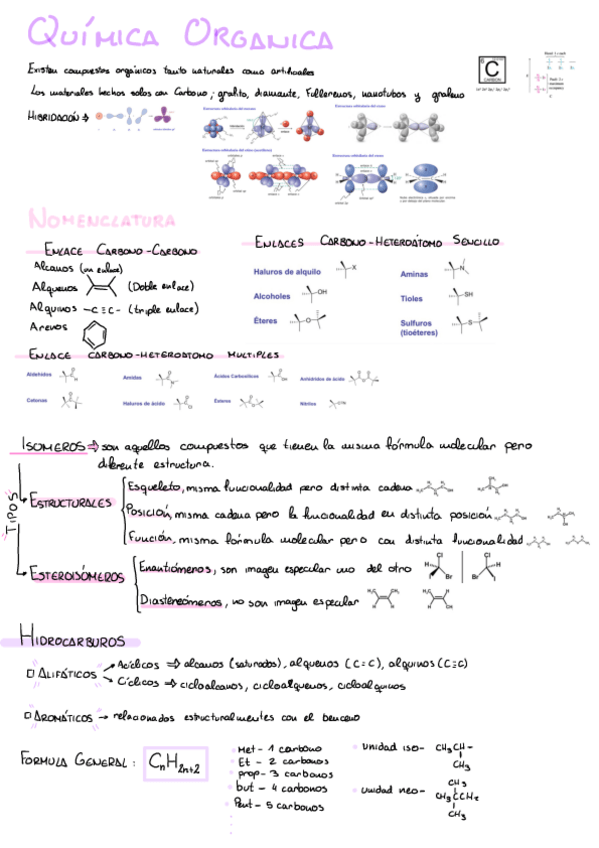 QUÍMICA ORGANICA
Existen compuestos orgánicos tanto naturales como artificiales
Los materiales hechos solos con Carbono; grafito, diamante, Fullerenos, nanotubos y grafeno
HIBRIDACIÓN
C
CARBON
NOMENCLATURA
ENLACE CARBONO-CARBONO
Alcanos (un enlace)
Alquenos (Doble enlace)
Alquinos -C≡C- (triple enlace)
Arenos
ENLACES CARBONO-HETEROÁTOMO SENCILLO
Haluros de alquilo X
Aminas N
Alcoholes OH
Tioles SH
Éteres O
Sulfuros (tioéteres) S
ENLACE CARBONO-HETEROATOMO MULTIPLES
Aldehídos
Amidas
Ácidos Carboxílicos
Anhídridos de ácido
Cetonas
Haluros de ácido
Ésteres
Nitrilos
ISOMEROS ⇒ son aquellos compuestos que tienen la misma fórmula molecular pero
diferente estructura.
TIPOS
ESTRUCTURALES
Esqueleto, misma funcionalidad pero distinta cadena
Posición, misma cadena pero la funcionalidad en distinta posición
Función, misma fórmula molecular pero con distinta funcionalidad
ESTEROISÓMEROS
Enantiómeros, son imagen especular uno del otro
Cl H I Br Cl H Br I
Diastereómeros, no son imagen especular
HIDROCARBUROS
ALIFÁTICOS
Acíclicos ⇒ alcanos (saturados), alquenos (C=C), alquinos (C≡C)
Cíclicos ⇒ cicloalcanos, cicloalquenos, cicloalquinos
AROMÁTICOS → relacionados estructuralmentes con el benceno
FORMULA GENERAL: CnH2n+2
Met - 1 carbono
Et - 2 carbonos
prop - 3 carbonos
but - 4 carbonos
Pent - 5 carbonos
Unidad iso- CH3CH-
CH3
unidad neo- CH3
CH3CCH2
CH3